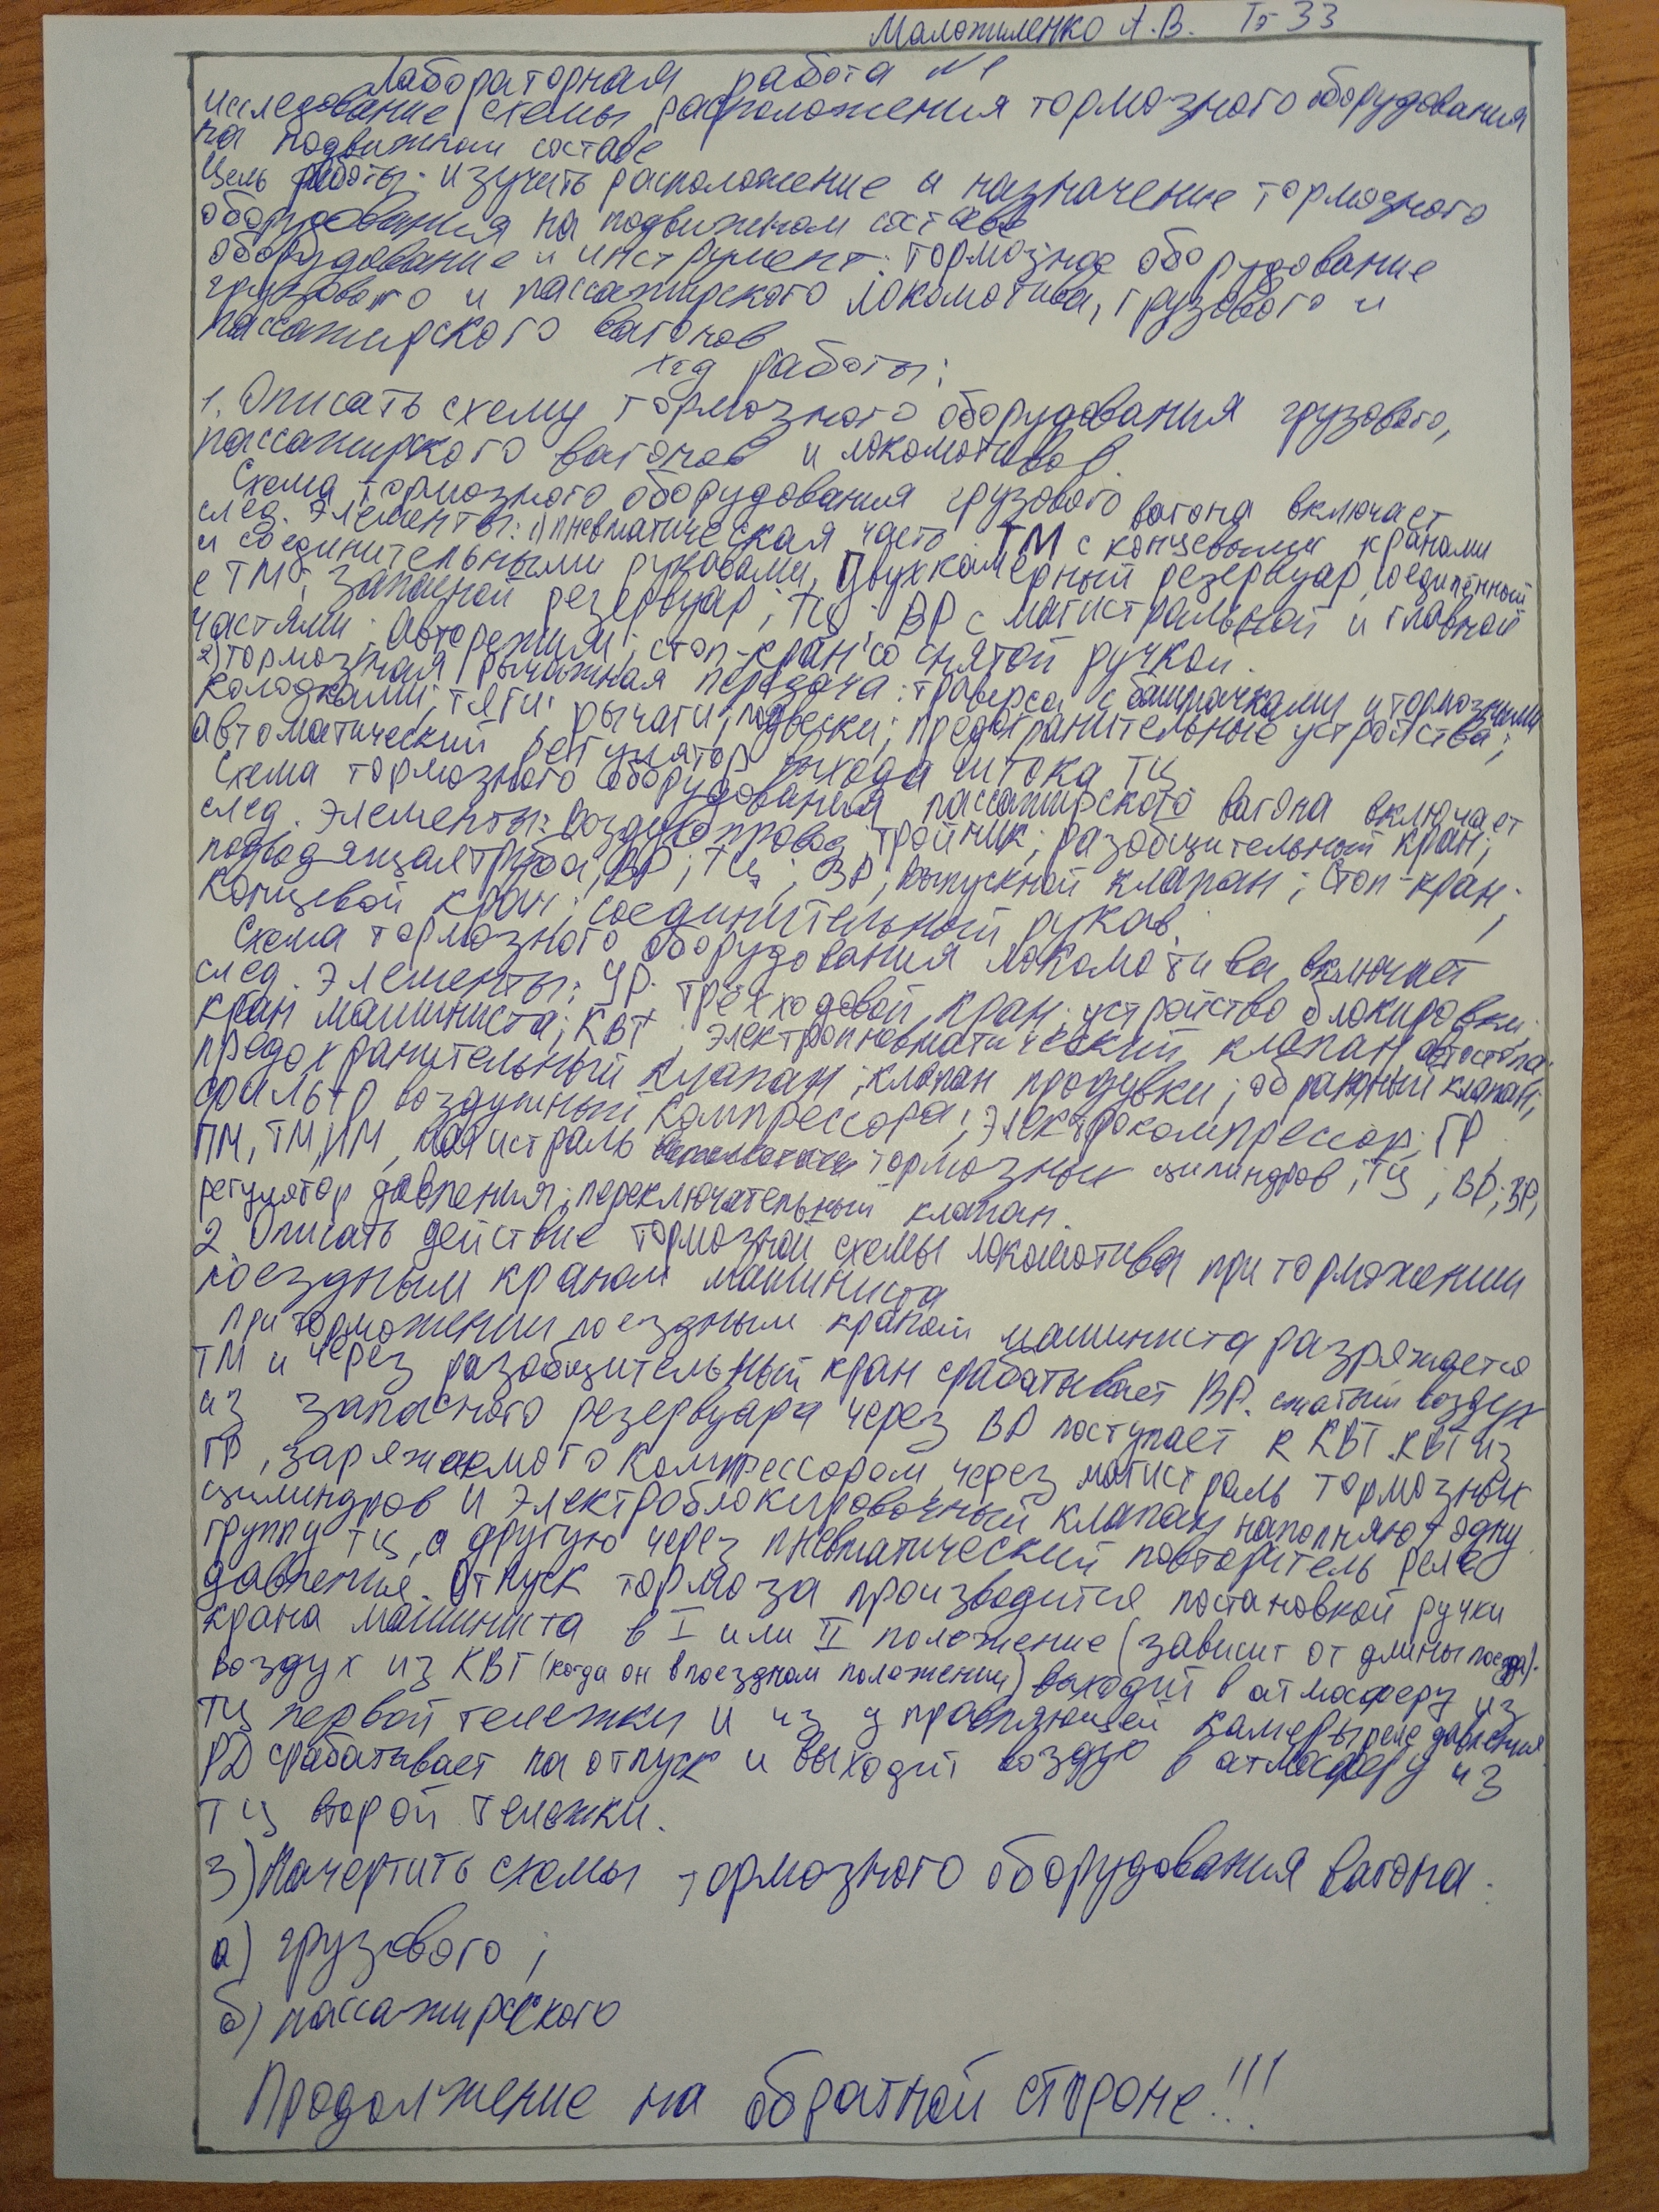 Маложиленко А.В. Тэ-33
Лабораторная работа №1
исследование схемы расположения тормозного оборудования
на подвижном составе
Цель работы: изучить расположение и назначение тормозного
оборудования на подвижном составе
оборудование и инструмент: тормозное оборудование
грузового и пассажирского локомотива, грузового и
пассажирского вагонов
Ход работы:
1. Описать схему тормозного оборудования грузового,
пассажирского вагонов и локомотивов.
Схема тормозного оборудования грузового вагона включает
след. элементы: 1) пневматическая часть: ТМ с концевыми кранами
и соединительными рукавами, Двухкамерный резервуар, соединённый
с ТМ; запасной резервуар; ТЦ; ВР с магистральной и главной
частями; Авторежим; стоп-кран со снятой ручкой.
2) тормозная рычажная передача: траверса с башмачками и тормозными
колодками; тяги; рычаги; подвески; предохранительные устройства;
автоматический регулятор выхода штока ТЦ
Схема тормозного оборудования пассажирского вагона включает
след. элементы: воздухопровод; тройник; разобщительный кран;
подводящая труба; ВР; ТЦ; ЗР; выпускной клапан; Стоп-кран;
концевой кран; соединительный рукав.
Схема тормозного оборудования локомотива включает
след. элементы: УР; трёхходовой кран; устройство блокировки;
кран машиниста; КВТ; электропневматический клапан автостопа;
предохранительный клапан; клапан продувки; обратный клапан;
фильтр воздушный компрессора; электрокомпрессор; ГР,
ПМ, ТМ, ИМ, магистраль тормозных цилиндров; ТЦ; ВР; ЗР;
регулятор давления; переключательный клапан.
2. Описать действие тормозной схемы локомотива при торможении
поездным краном машиниста
При торможении поездным краном машиниста разряжается
ТМ и через разобщительный кран срабатывает ВР. сжатый воздух
из запасного резервуара через ВР поступает к КВТ. КВТ из
ГР, заряжаемого компрессором, через магистраль тормозных
цилиндров и электроблокировочный клапан наполняют одну
группу ТЦ, а другую через пневматический повторитель реле
давления. Отпуск тормоза производится постановкой ручки
крана машиниста в I или II положение (зависит от длины поезда).
воздух из КВТ (когда он в поездном положении) выходит в атмосферу из
ТЦ первой тележки и из управляющей камеры реле давления
РД срабатывает на отпуск и выходит воздух в атмосферу из
ТЦ второй тележки.
3) Начертить схемы тормозного оборудования вагона.
а) грузового;
б) пассажирского
Продолжение на обратной стороне!!!